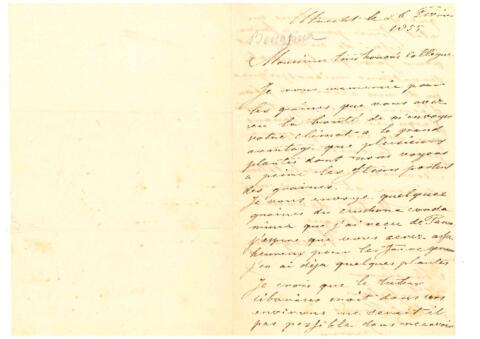 Utrecht le 26 Février
1855
Monsieur très honoré Collegue
Je vous remercie pour
les graines que vous avez
eu la bonté de m'envoyer
votre climat a le grand
avantage que plusieurs
plantes dont nous voyons
a peine les fleurs portent
des graines.
Je vous envoye quelques
graines du cinchona conda
minea que j'ai reçu de
j'espère que vous serez assez
heureux pour les faire germer
j'en ai déja quelques plantes
Je crois que le
croit dans vos
environs me serait il
pas possible d'en recevoir